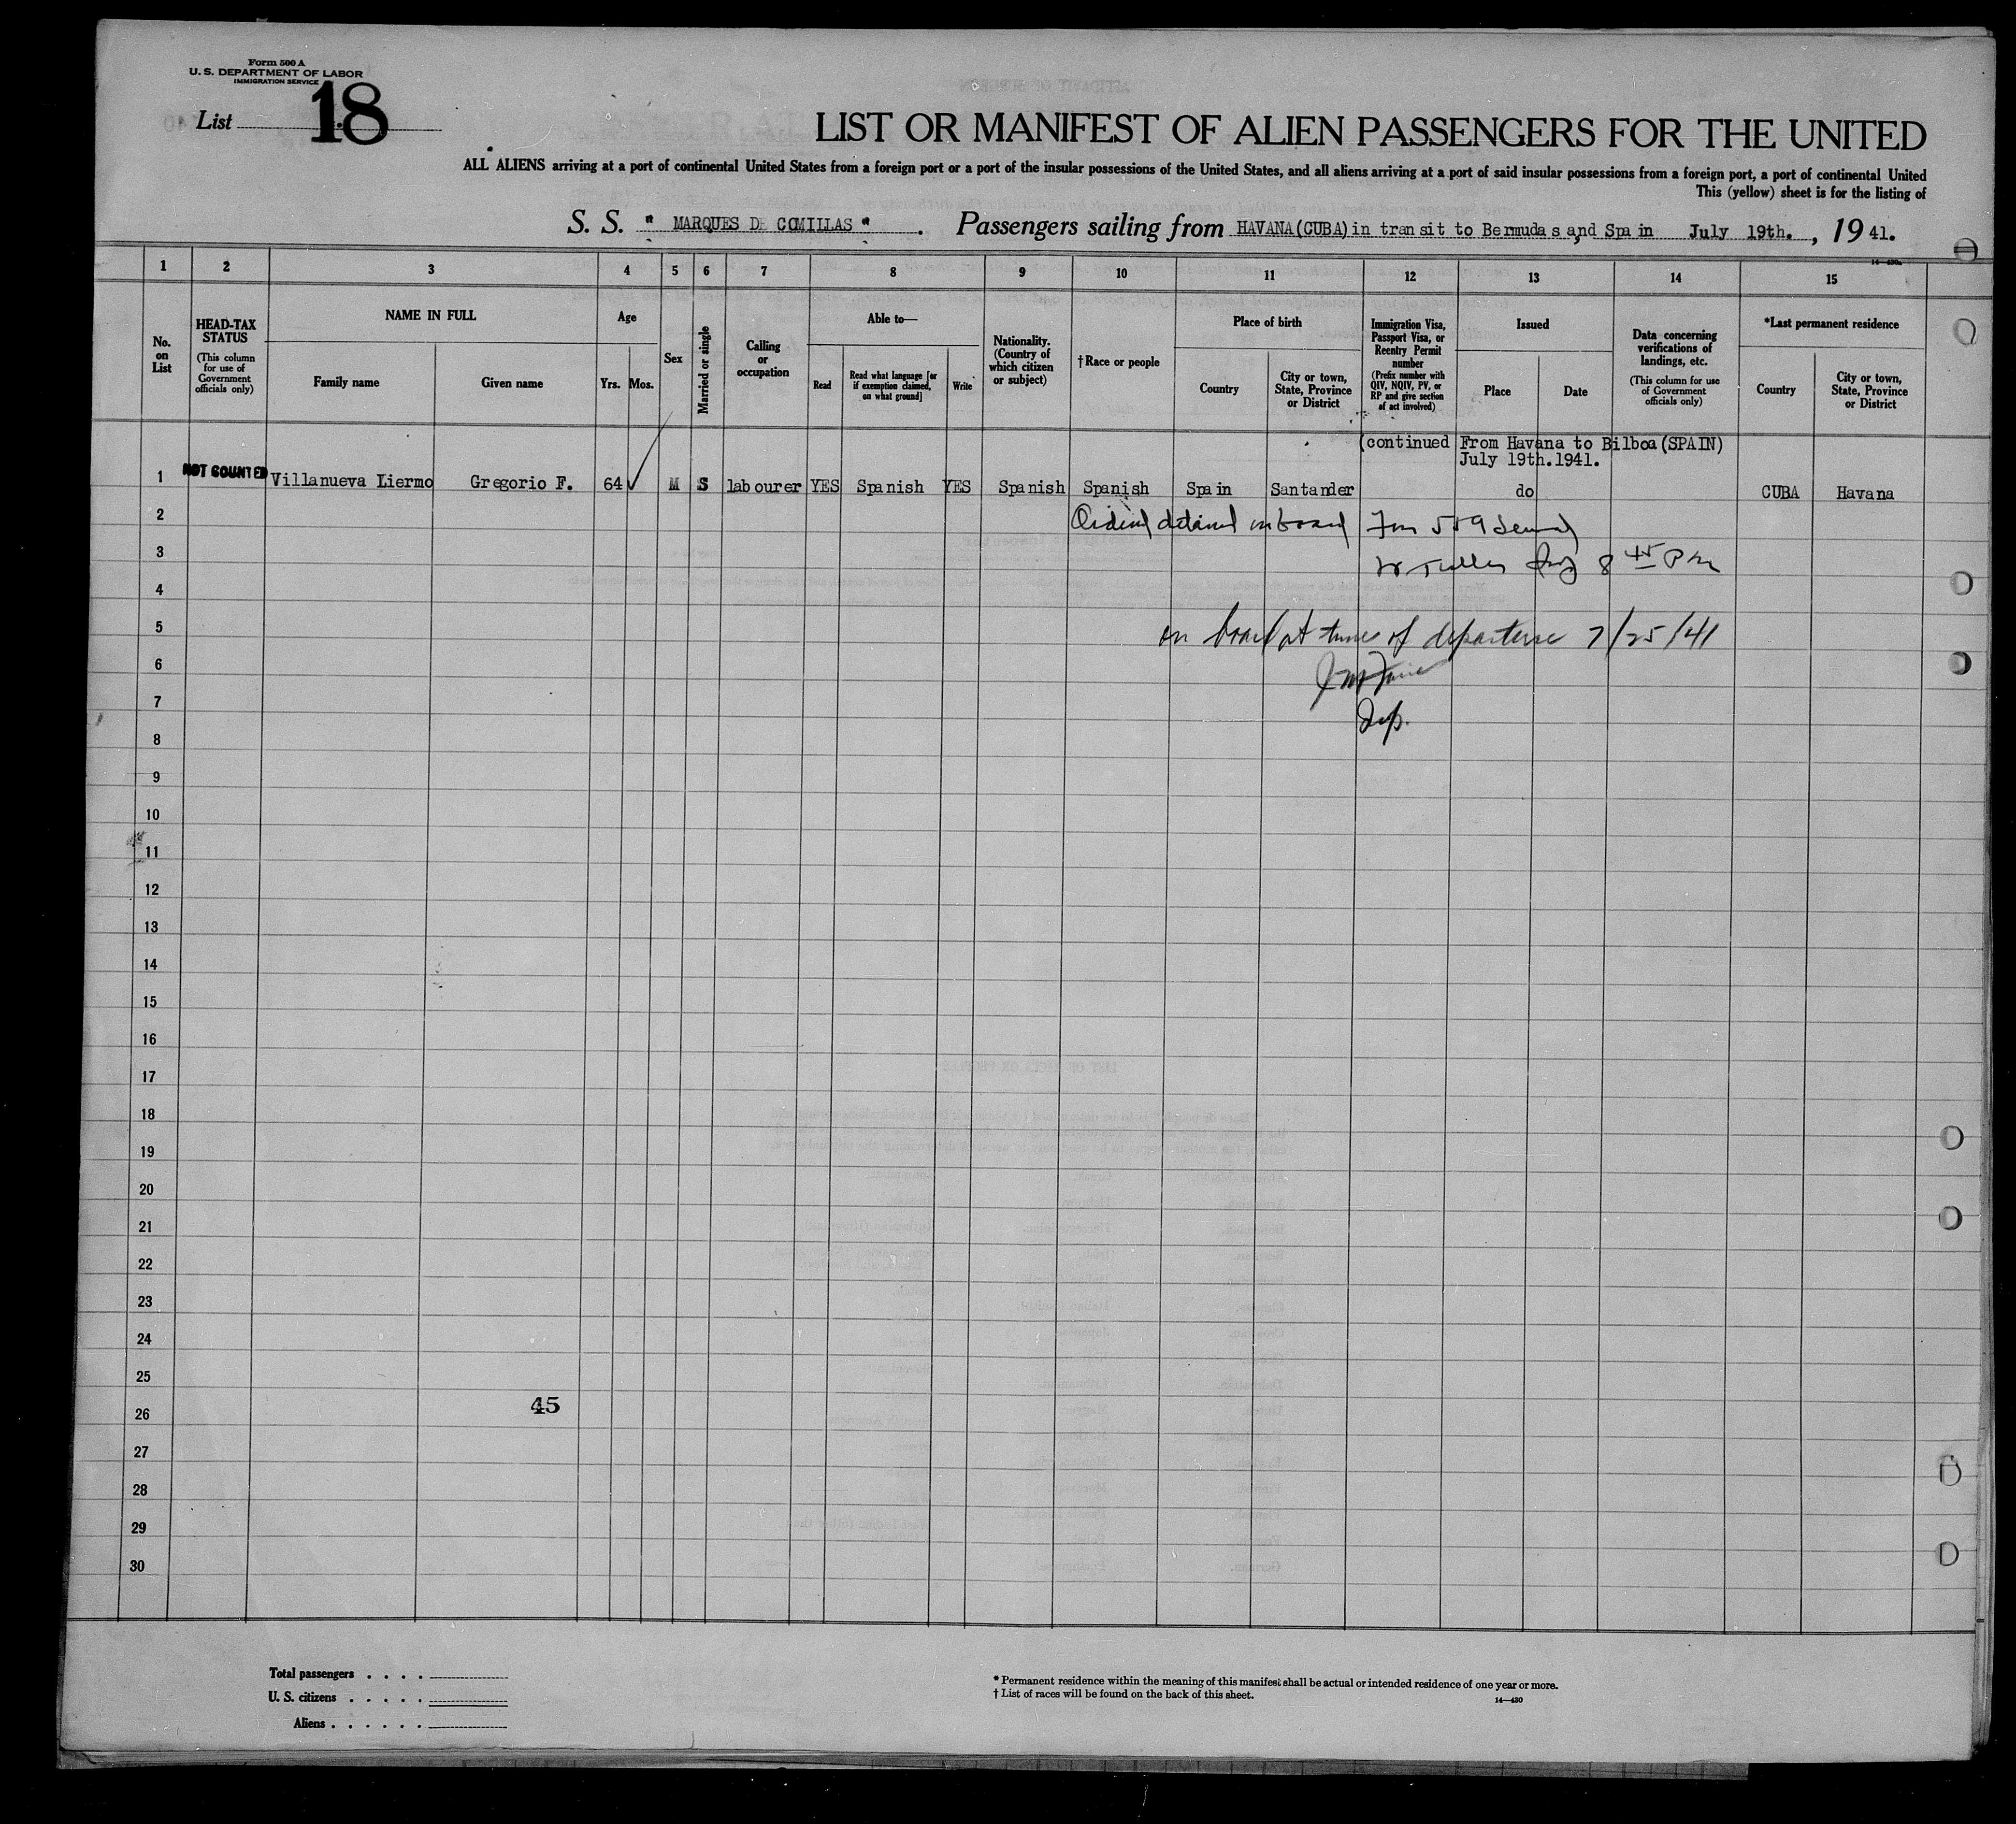 Form 500 A
U. S. DEPARTMENT OF LABOR
IMMIGRATION SERVICE
List 18
LIST OR MANIFEST OF ALIEN PASSENGERS FOR THE UNITED
ALL ALIENS arriving at a port of continental United States from a foreign port or a port of the insular possessions of the United States, and all aliens arriving at a port of said insular possessions from a foreign port, a port of continental United
This (yellow) sheet is for the listing of
S. S. " MARQUES DE COMILLAS " . Passengers sailing from HAVANA(CUBA) in transit to Bermudas, and Spain July 19th. , 1941.
14—430a
1 2 3 4 5 6 7 8 9 10 11 12 13 14 15
No. on List
HEAD-TAX STATUS
(This column for use of Government officials only)
NAME IN FULL
Family name
Given name
Age
Yrs.
Mos.
Sex
Married or single
Calling or occupation
Able to—
Read
Read what language [or if exemption claimed, on what ground]
Write
Nationality. (Country of which citizen or subject)
†Race or people
Place of birth
Country
City or town, State, Province or District
Immigration Visa, Passport Visa, or Reentry Permit number
(Prefix number with QIV, NQIV, PV, or RP and give section of act involved)
Issued
Place
Date
Data concerning verifications of landings, etc.
(This column for use of Government officials only)
*Last permanent residence
Country
City or town, State, Province or District
(continued From Havana to Bilboa (SPAIN)
July 19th.1941.
1 NOT COUNTED Villanueva Liermo Gregorio F. 64 M S labourer YES Spanish YES Spanish Spanish Spain Santander do CUBA Havana
2 detained on board 559
3 8 45 P m
4
5 on board at time of departure 7/25/41
6
7 Insp.
8
9
10
11
12
13
14
15
16
17
18
19
20
21
22
23
24
25
26 45
27
28
29
30
Total passengers . . . .
U. S. citizens . . . . .
Aliens . . . . . .
* Permanent residence within the meaning of this manifest shall be actual or intended residence of one year or more.
† List of races will be found on the back of this sheet.
14—430